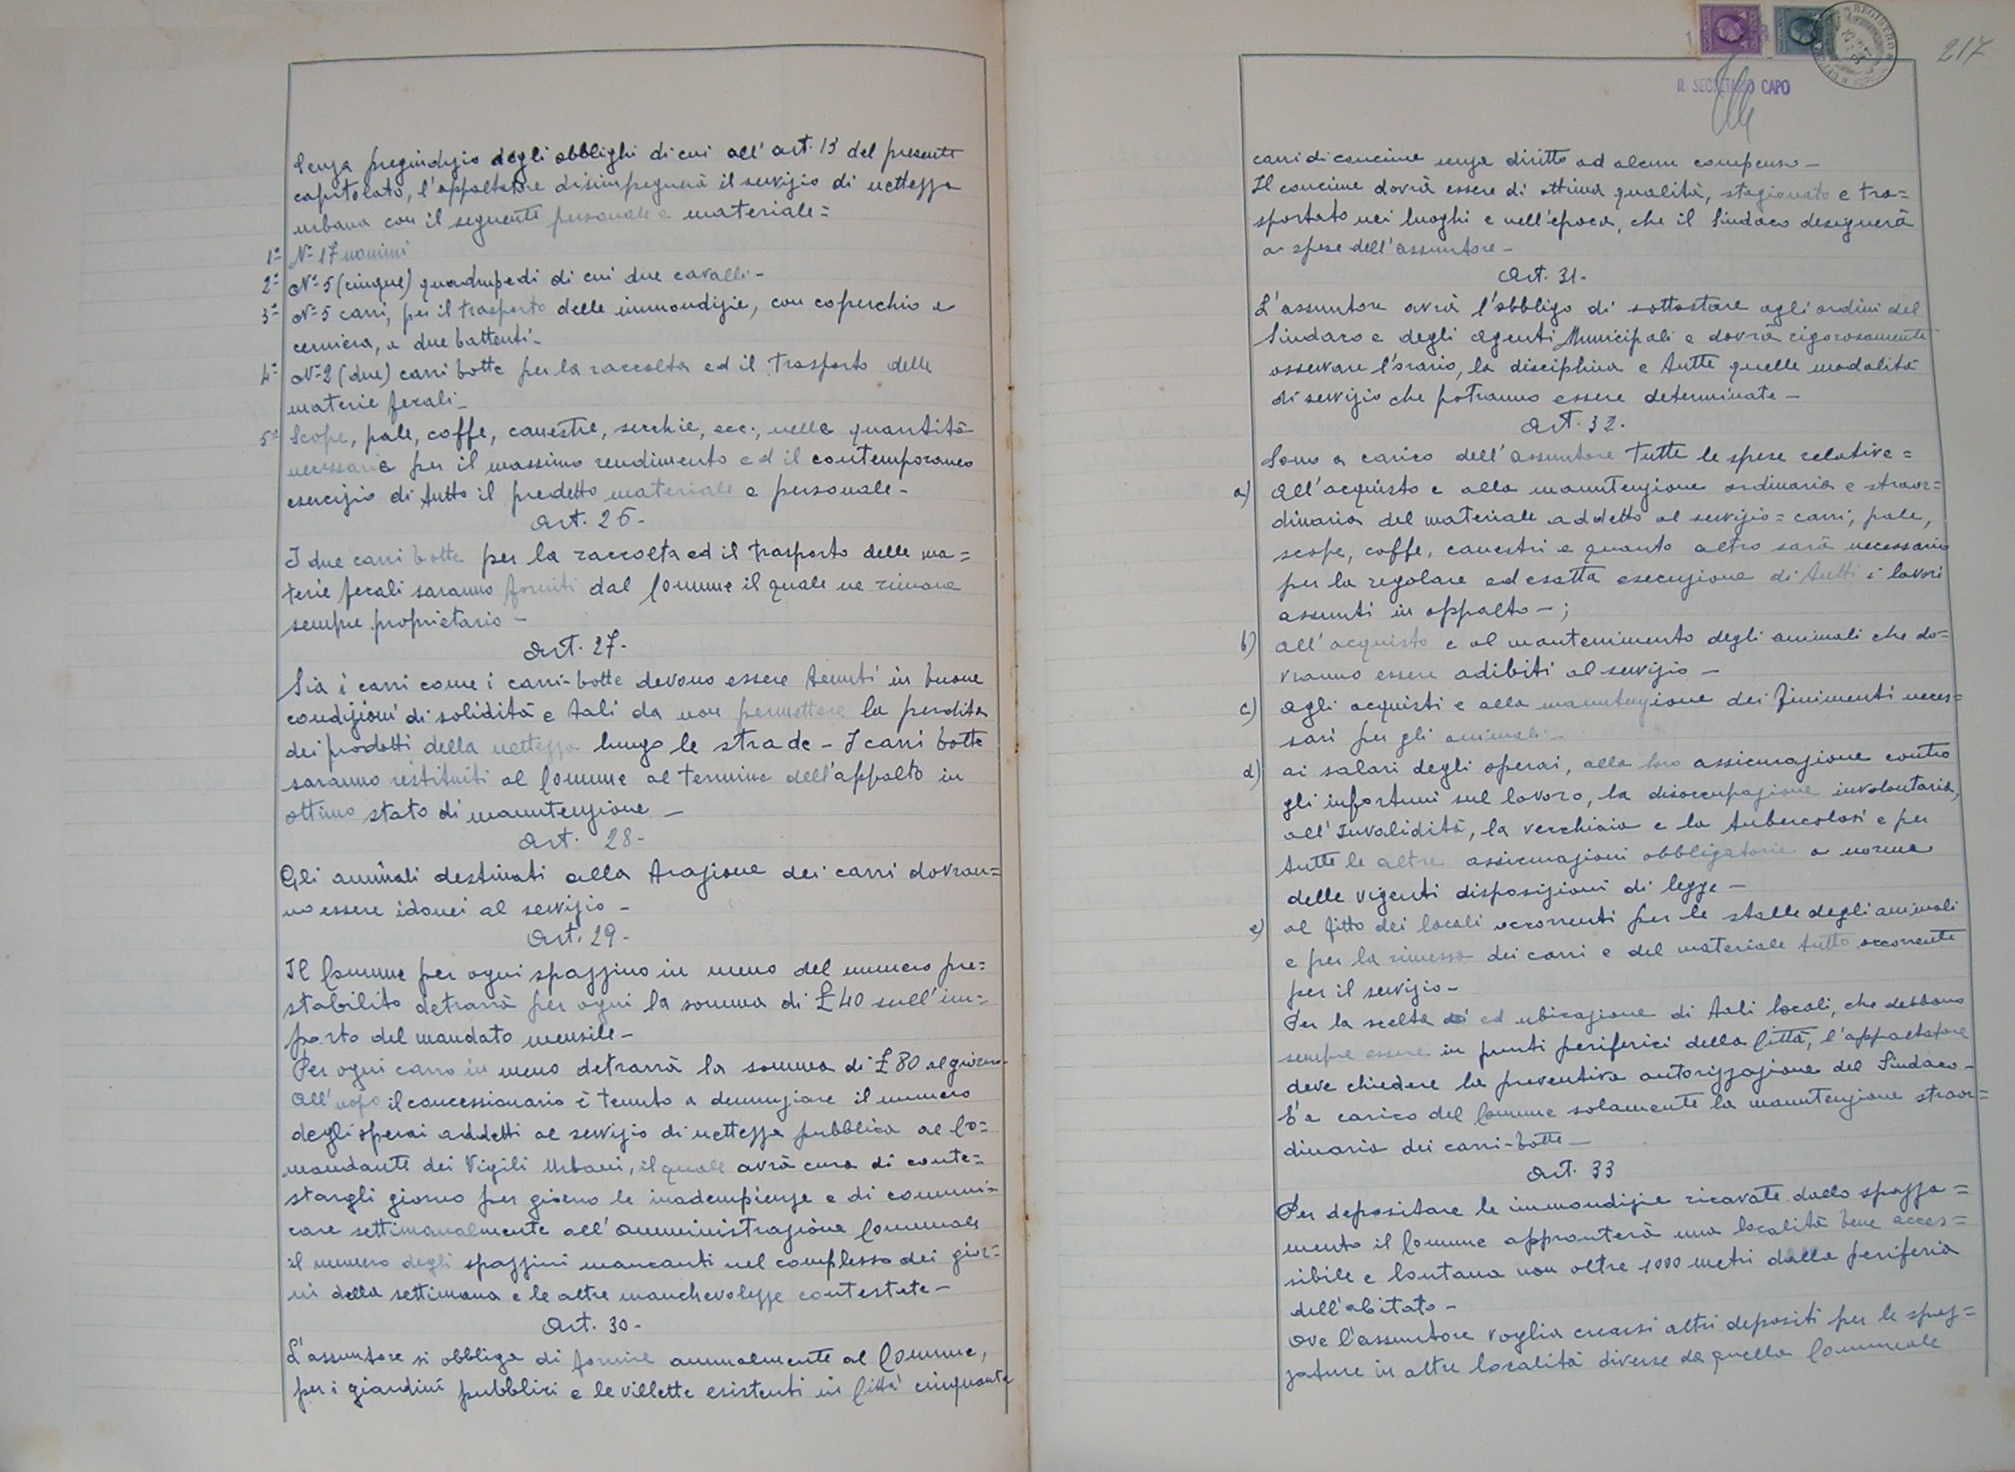 Senza pregiudizio degli obblighi di cui all'art. 13 del presente
capitolato, l'appaltatore disimpegnerà il servizio di nettezza
urbana con il seguente personale e materiale=
1° N° 17 uomini
2° N° 5 (cinque) quadrupedi di cui due cavalli-
3° N° 5 carri, per il trasporto delle immondizie, con coperchio e
cerniera, a due battenti-
4° N° 2 (due) carri botte per la raccolta ed il trasporto delle
materie fecali-
5° Scope, pale, coffe, canestre, secchie, ecc., nella quantità
necessaria per il massimo rendimento ed il contemporaneo
esercizio di tutto il predetto materiale e personale-
Art. 26-
I due carri botte per la raccolta ed il trasporto delle ma=
terie fecali saranno forniti dal Comune il quale ne rimane
sempre proprietario-
Art. 27-
Sia i carri come i carri-botte devono essere tenuti in buone
condizioni di solidità e tali da non permettere la perdita
dei prodotti della nettezza lungo le strade- I carri botte
saranno restituiti al Comune al termine dell'appalto in
ottimo stato di manutenzione-
Art. 28-
Gli animali destinati alla trazione dei carri dovran=
no essere idonei al servizio-
Art. 29-
Il Comune per ogni spazzino in meno del numero pre=
stabilito detrarrà per ogni la somma di £ 40 sull'im=
porto del mandato mensile-
Per ogni carro in meno detrarrà la somma di £ 80 al giorno
All'uopo il concessionario è tenuto a denunziare il numero
degli operai addetti al servizio di nettezza pubblica al Co=
mandante dei Vigili Urbani, il quale avrà cura di conte=
stargli giorno per giorno le inadempienze e di comuni=
care settimanalmente all'Amministrazione Comunale
il numero degli spazzini mancanti nel complesso dei gior=
ni della settimana e le altre manchevolezze contestate-
Art. 30-
L'assuntore si obbliga di fornire annualmente al Comune,
per i giardini pubblici e le villette esistenti in Città cinquanta
217
IL SEGRETARIO CAPO
carri di concime senza diritto ad alcun compenso-
Il concime dovrà essere di ottima qualità, stagionato e tra=
sportato nei luoghi e nell'epoca, che il Sindaco designerà
a spese dell'assuntore-
Art. 31-
L'assuntore avrà l'obbligo di sottostare agli ordini del
Sindaco e degli Agenti Municipali e dovrà rigorosamente
osservare l'orario, la disciplina e tutte quelle modalità
di servizio che potranno essere determinate-
Art. 32-
Sono a carico dell'assuntore tutte le spese relative=
a) All'acquisto e alla manutenzione ordinaria e straor=
dinaria del materiale addetto al servizio= carri, pale,
scope, coffe, canestri e quanto altro sarà necessario
per la regolare ed esatta esecuzione di tutti i lavori
assunti in appalto-;
b) all'acquisto e al mantenimento degli animali che do=
vranno essere adibiti al servizio-
c) agli acquisti e alla manutenzione dei finimenti neces=
sari per gli animali-
d) ai salari degli operai, alla loro assicurazione contro
gli infortuni sul lavoro, la disoccupazione involontaria,
all'Invalidità, la vecchiaia e la tubercolosi e per
tutte le altre assicurazioni obbligatorie a norma
delle vigenti disposizioni di legge-
e) al fitto dei locali occorrenti per le stalle degli animali
e per la rimessa dei carri e del materiale tutto occorrente
per il servizio-
Per la scelta ed ubicazione di tali locali, che debbono
sempre essere in punti periferici della Città, l'appaltatore
deve chiedere la preventiva autorizzazione del Sindaco-
E' a carico del Comune solamente la manutenzione straor=
dinaria dei carri-botte-
Art. 33
Per depositare le immondizie ricavate dallo spazza=
mento il Comune appronterà una località bene acces=
sibile e lontana non oltre 1000 metri dalla periferia
dell'abitato-
Ove l'assuntore voglia crearsi altri depositi per le spaz=
zature in altre località diverse da quella Comunale